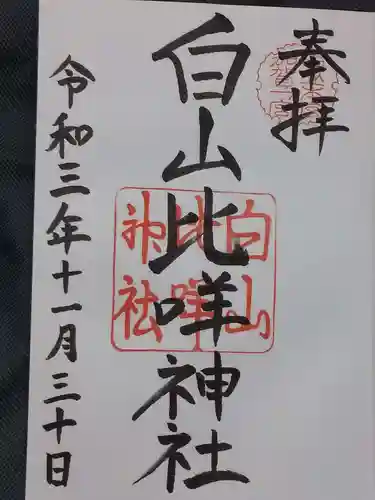 奉拝
白山比咩神社
白山
比咩
神社
令和三年十一月三十日